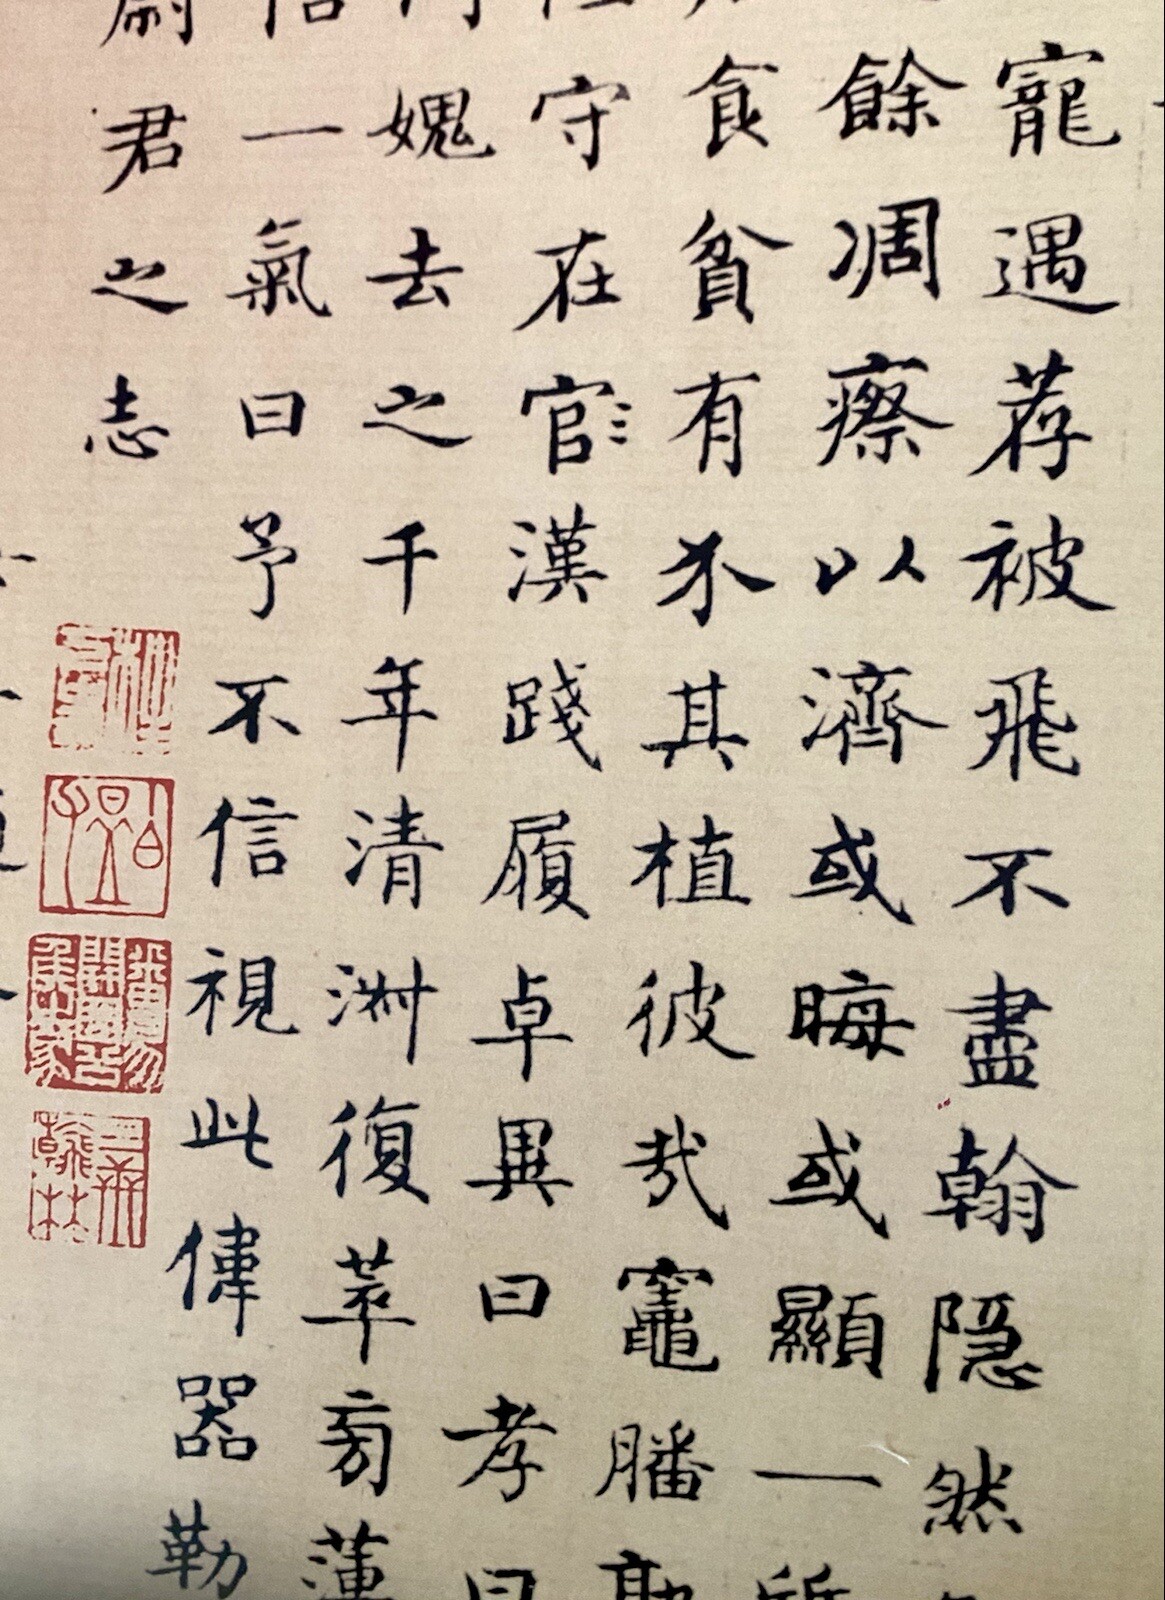 寵遇荐被飛不盡翰隐然
餘凋瘵以濟或晦或顯一
食貧有不其植彼㦲竈膰
守在官〻漢踐履卓異曰孝曰
媿去之千年清渊復萃旁薄
一氣曰予不信視此偉器勒
君之志